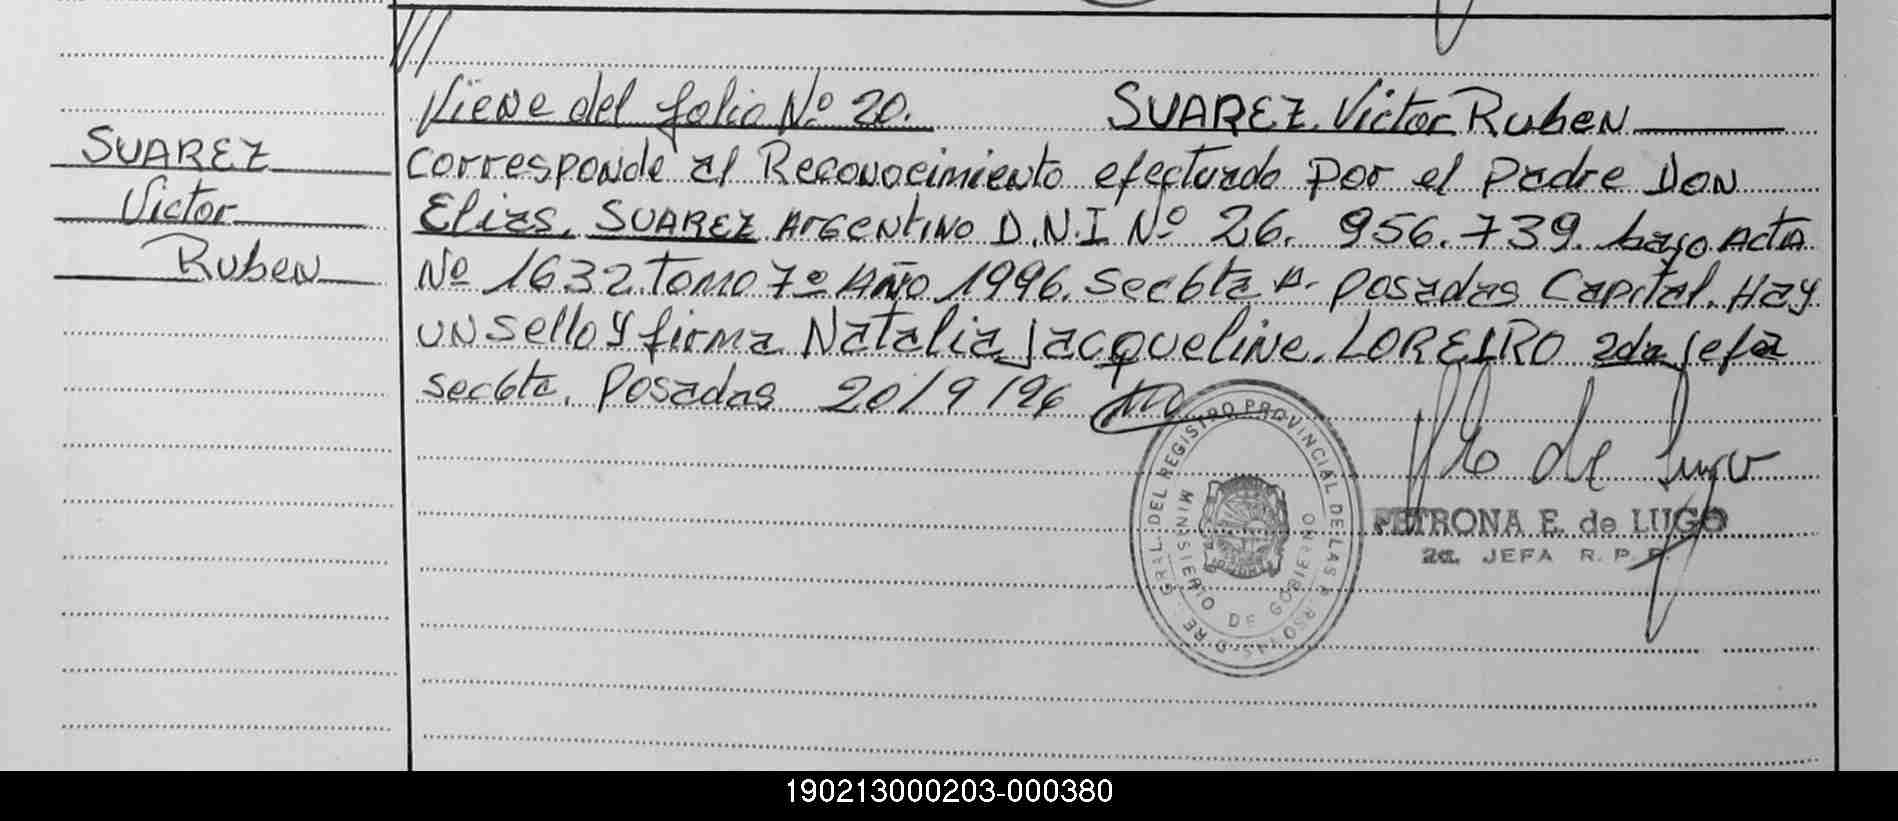 ///
Viene del folio Nº 20. SUAREZ. Victor Ruben
SUAREZ
Victor
Ruben
corresponde al Reconocimiento efectuado por el padre DON
Elias. SUAREZ Argentino D.N.I Nº 26. 956.739. bajo Acta
Nº 1632. Tomo 7º Año 1996. Sec 6ta A. Posadas Capital. Hay
un sello y firma Natalia Jacqueline. LOREIRO 2da jefa
sec 6ta. Posadas 20/9/96
GRAL. DEL REGISTRO PROVINCIAL DE LAS
MINISTERIO DE GOBIERNO
de Lugo
PETRONA E. de LUGO
2a. JEFA R. P. P.
190213000203-000380